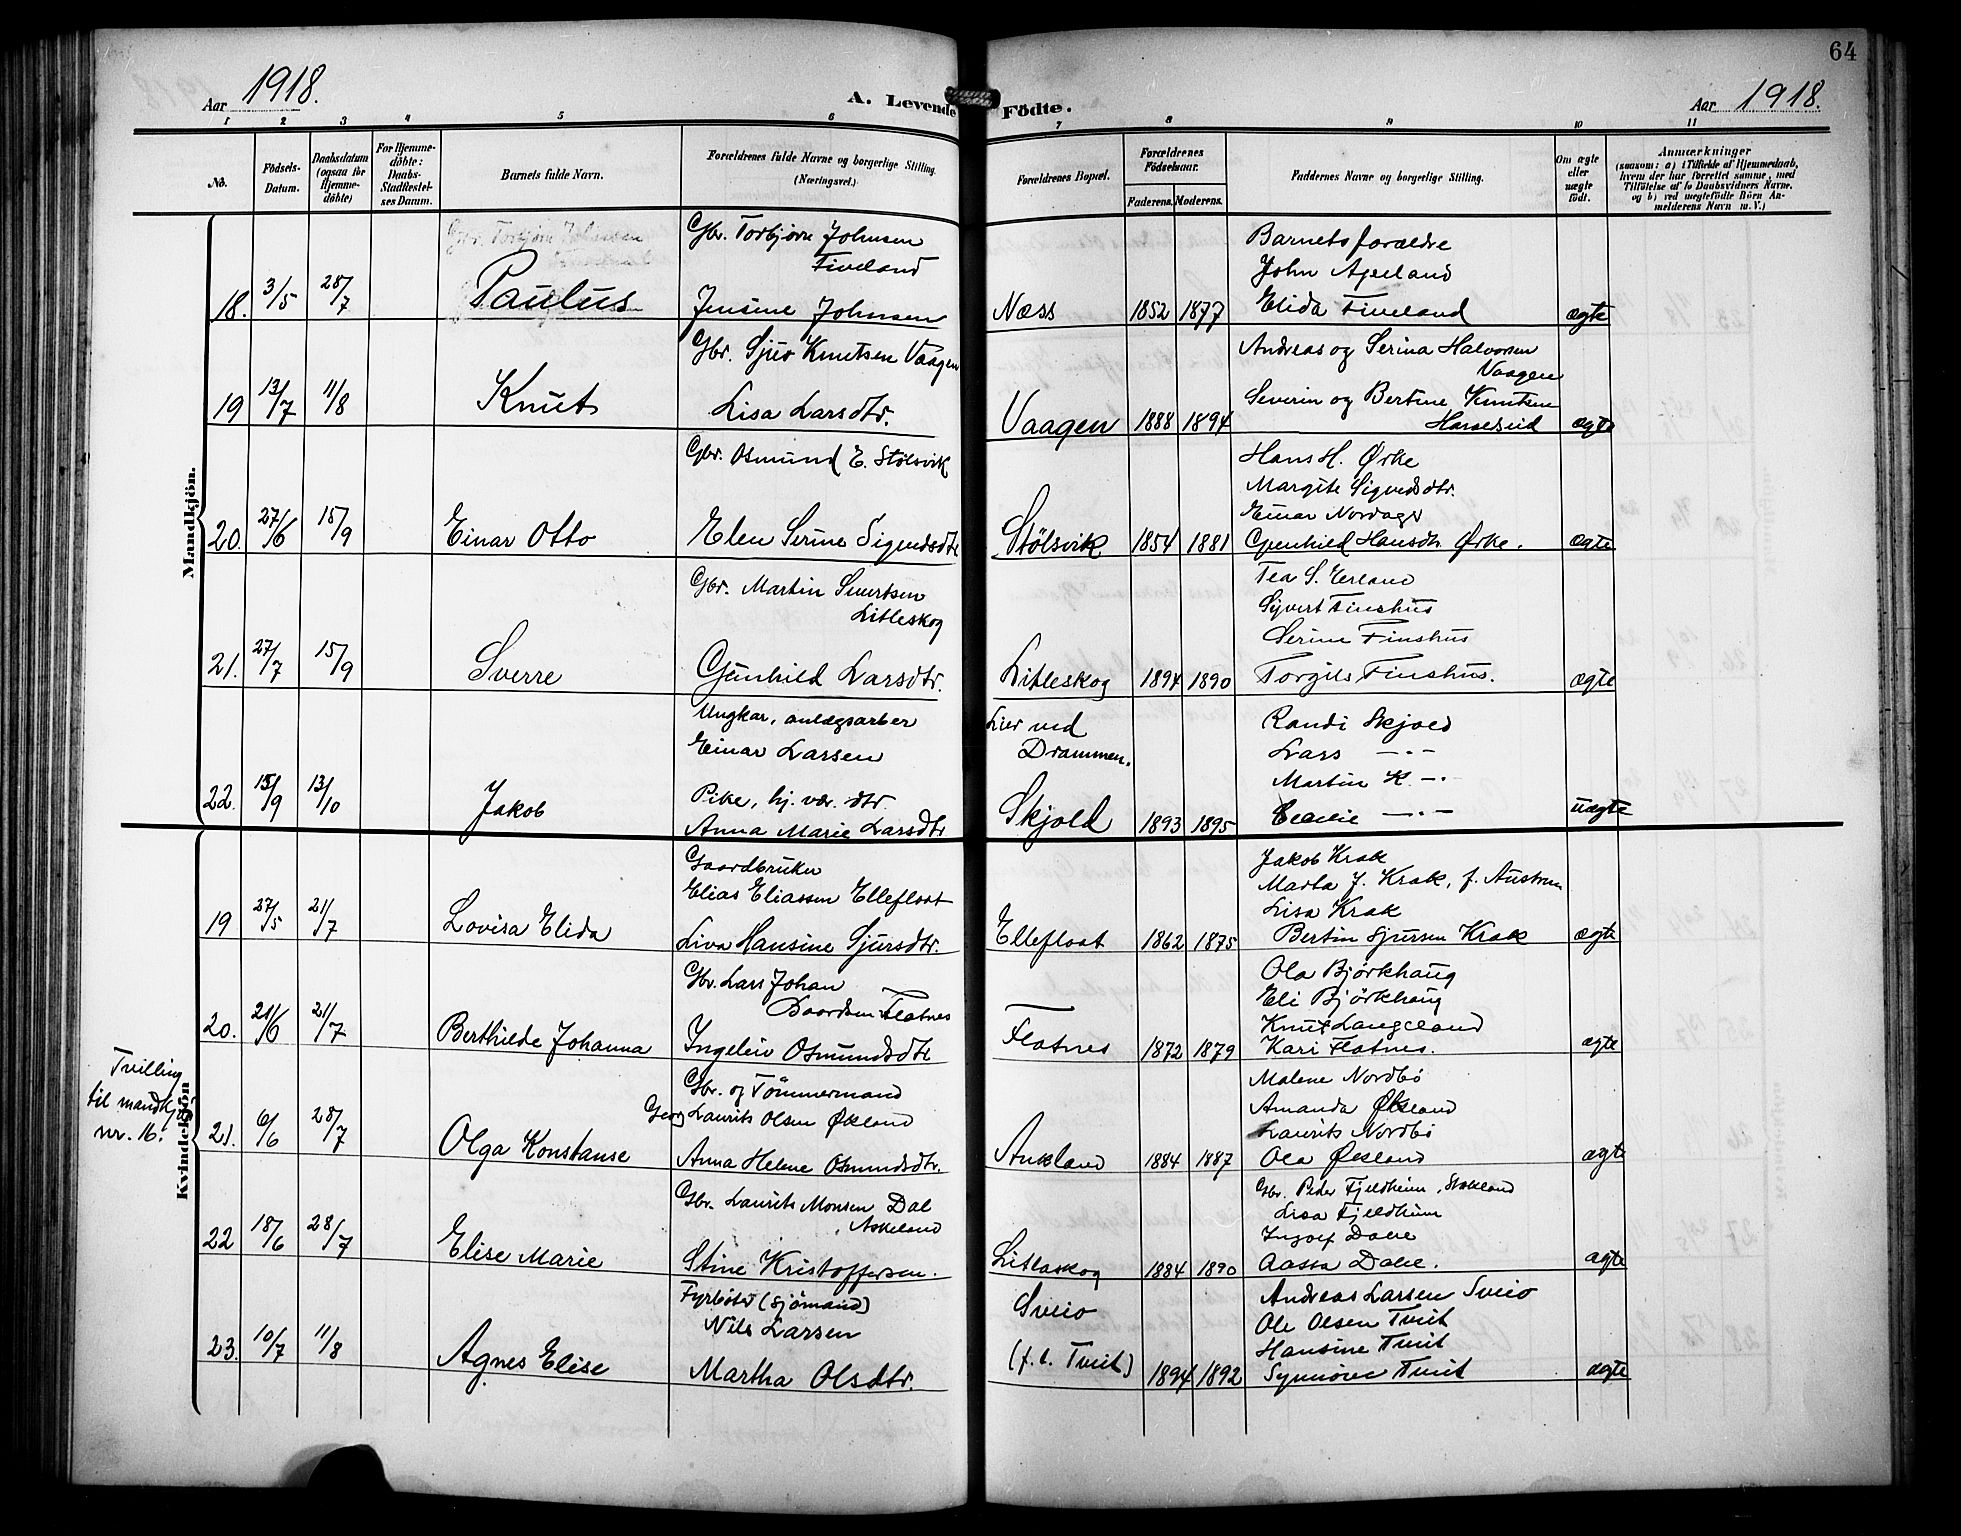 64
Aar 1918.
A. Levende Födte.
Aar 1918.
1 2 3 4 5 6 7 8 9 10 11
No.
Födsels-Datum.
Daabsdatum (ogsaa for Hjemme-döbte)
For Hjemme-döbte: Daabs-Stadfestel-ses Datum.
Barnets fulde Navn.
Forældrenes fulde Navne og borgerlige Stilling. (Næringsvei.)
Forældrenes Bopæl.
Forældrenes Födselsaar.
Faderens. Moderens.
Faddernes Navne og borgerlige Stilling.
Om ægte eller uægte födt.
Anmærkninger
(saasom: a) i Tilfælde af Hjemmedaab, hvem der har forrettet samme, med Tilföielse af to Daabsvidners Navne, og b) ved uægtefödte Börn An-melderens Navn m. V.)
Mandkjön.
18. 3/5 28/7 Paulus
Gbr. Torbjørn Johnsen
Fiveland
Jensine Johnsen
Næss 1852 1877
Barnets forældre
John Apeland
Elida Fiveland
ægte
19 13/7 11/8 Knut
Gbr. Sjur Knutsen Vaagen
Lisa Larsdtr.
Vaagen 1888 1894
Andreas og Serina Halvorsen
Vaagen
Severin og Bertine Knutsen
ægte
20. 27/6 15/9 Einar Otto
Gbr. Osmund E. Stölsvik
Elen Serine Sigvedsdtr
Stölsvik 1854 1881
Hans H. Ørke
Margite Sigvedsdtr.
Einar Nordager
Gunhild Hansdtr Ørke.
ægte
21. 27/7 15/9 Sverre
Gbr. Martin Sivertsen
Litleskog
Gunhild Larsdtr.
Litleskog 1894 1890
Tea S. Erland
Syvert Finshus
Serine Finshus
Torgils Finshus.
ægte
22. 15/9 13/10 Jakob
Ungkar, anlægsarber
Einar Larsen
Pike, hj. vær. dtr.
Anna Marie Larsdtr
Lier ved
Drammen.
Skjold 1893 1895
Randi Skjold
Lars —"—
Martin K —"
Cecilie —"—
uægte
Kvindekjön
19 27/5 21/7 Lovisa Elida
Gaardbruker
Elias Eliassen Ellefloat
Liva Hansine Sjursdtr.
Ellefloat 1862 1875
Jakob Krak
Marta J. Krak, f. Austrum
Lisa Krak
Bertin Sjursen Krak
ægte
20. 21/6 21/7 Berthilde Johanna
Gbr. Lars Johan
Baardsen Flatnes
Ingeleiv Osmundsdtr
Flatnes 1872 1879
Ola Bjørkhaug
Eli Bjørkhaug
Knut Langeland
Kari Flatnes.
ægte
Tvilling
til mandkjøn
nr. 16.
21. 6/6 28/7 Olga Konstanse
Gbr. og Tömmermand
Georg Laurits Olsen Økland
Anna Helene Osmundsdtr.
Aukland 1884 1887
Malene Nordbö
Amanda Økland
Laurits Nordbö
Ola Økland
ægte
22 18/6 28/7 Elise Marie
Gbr. Laurits Monsen Dal
Askeland
Stine Kristoffersen.
Litlaskog 1884 1890
Gbr. Peder Fjeldheim, Stakland
Lisa Fjeldheim
Ingolf Dale
Aasta Dale.
ægte
23. 10/7 11/8 Agnes Elise
Fyrböter (sjömand)
Nils Larsen
Martha Olsdtr.
Sveio
(f. t. Tveit) 1894 1892
Andreas Larsen Sveio
Ole Olsen Tveit
Hansine Tveit
Tveit
ægte